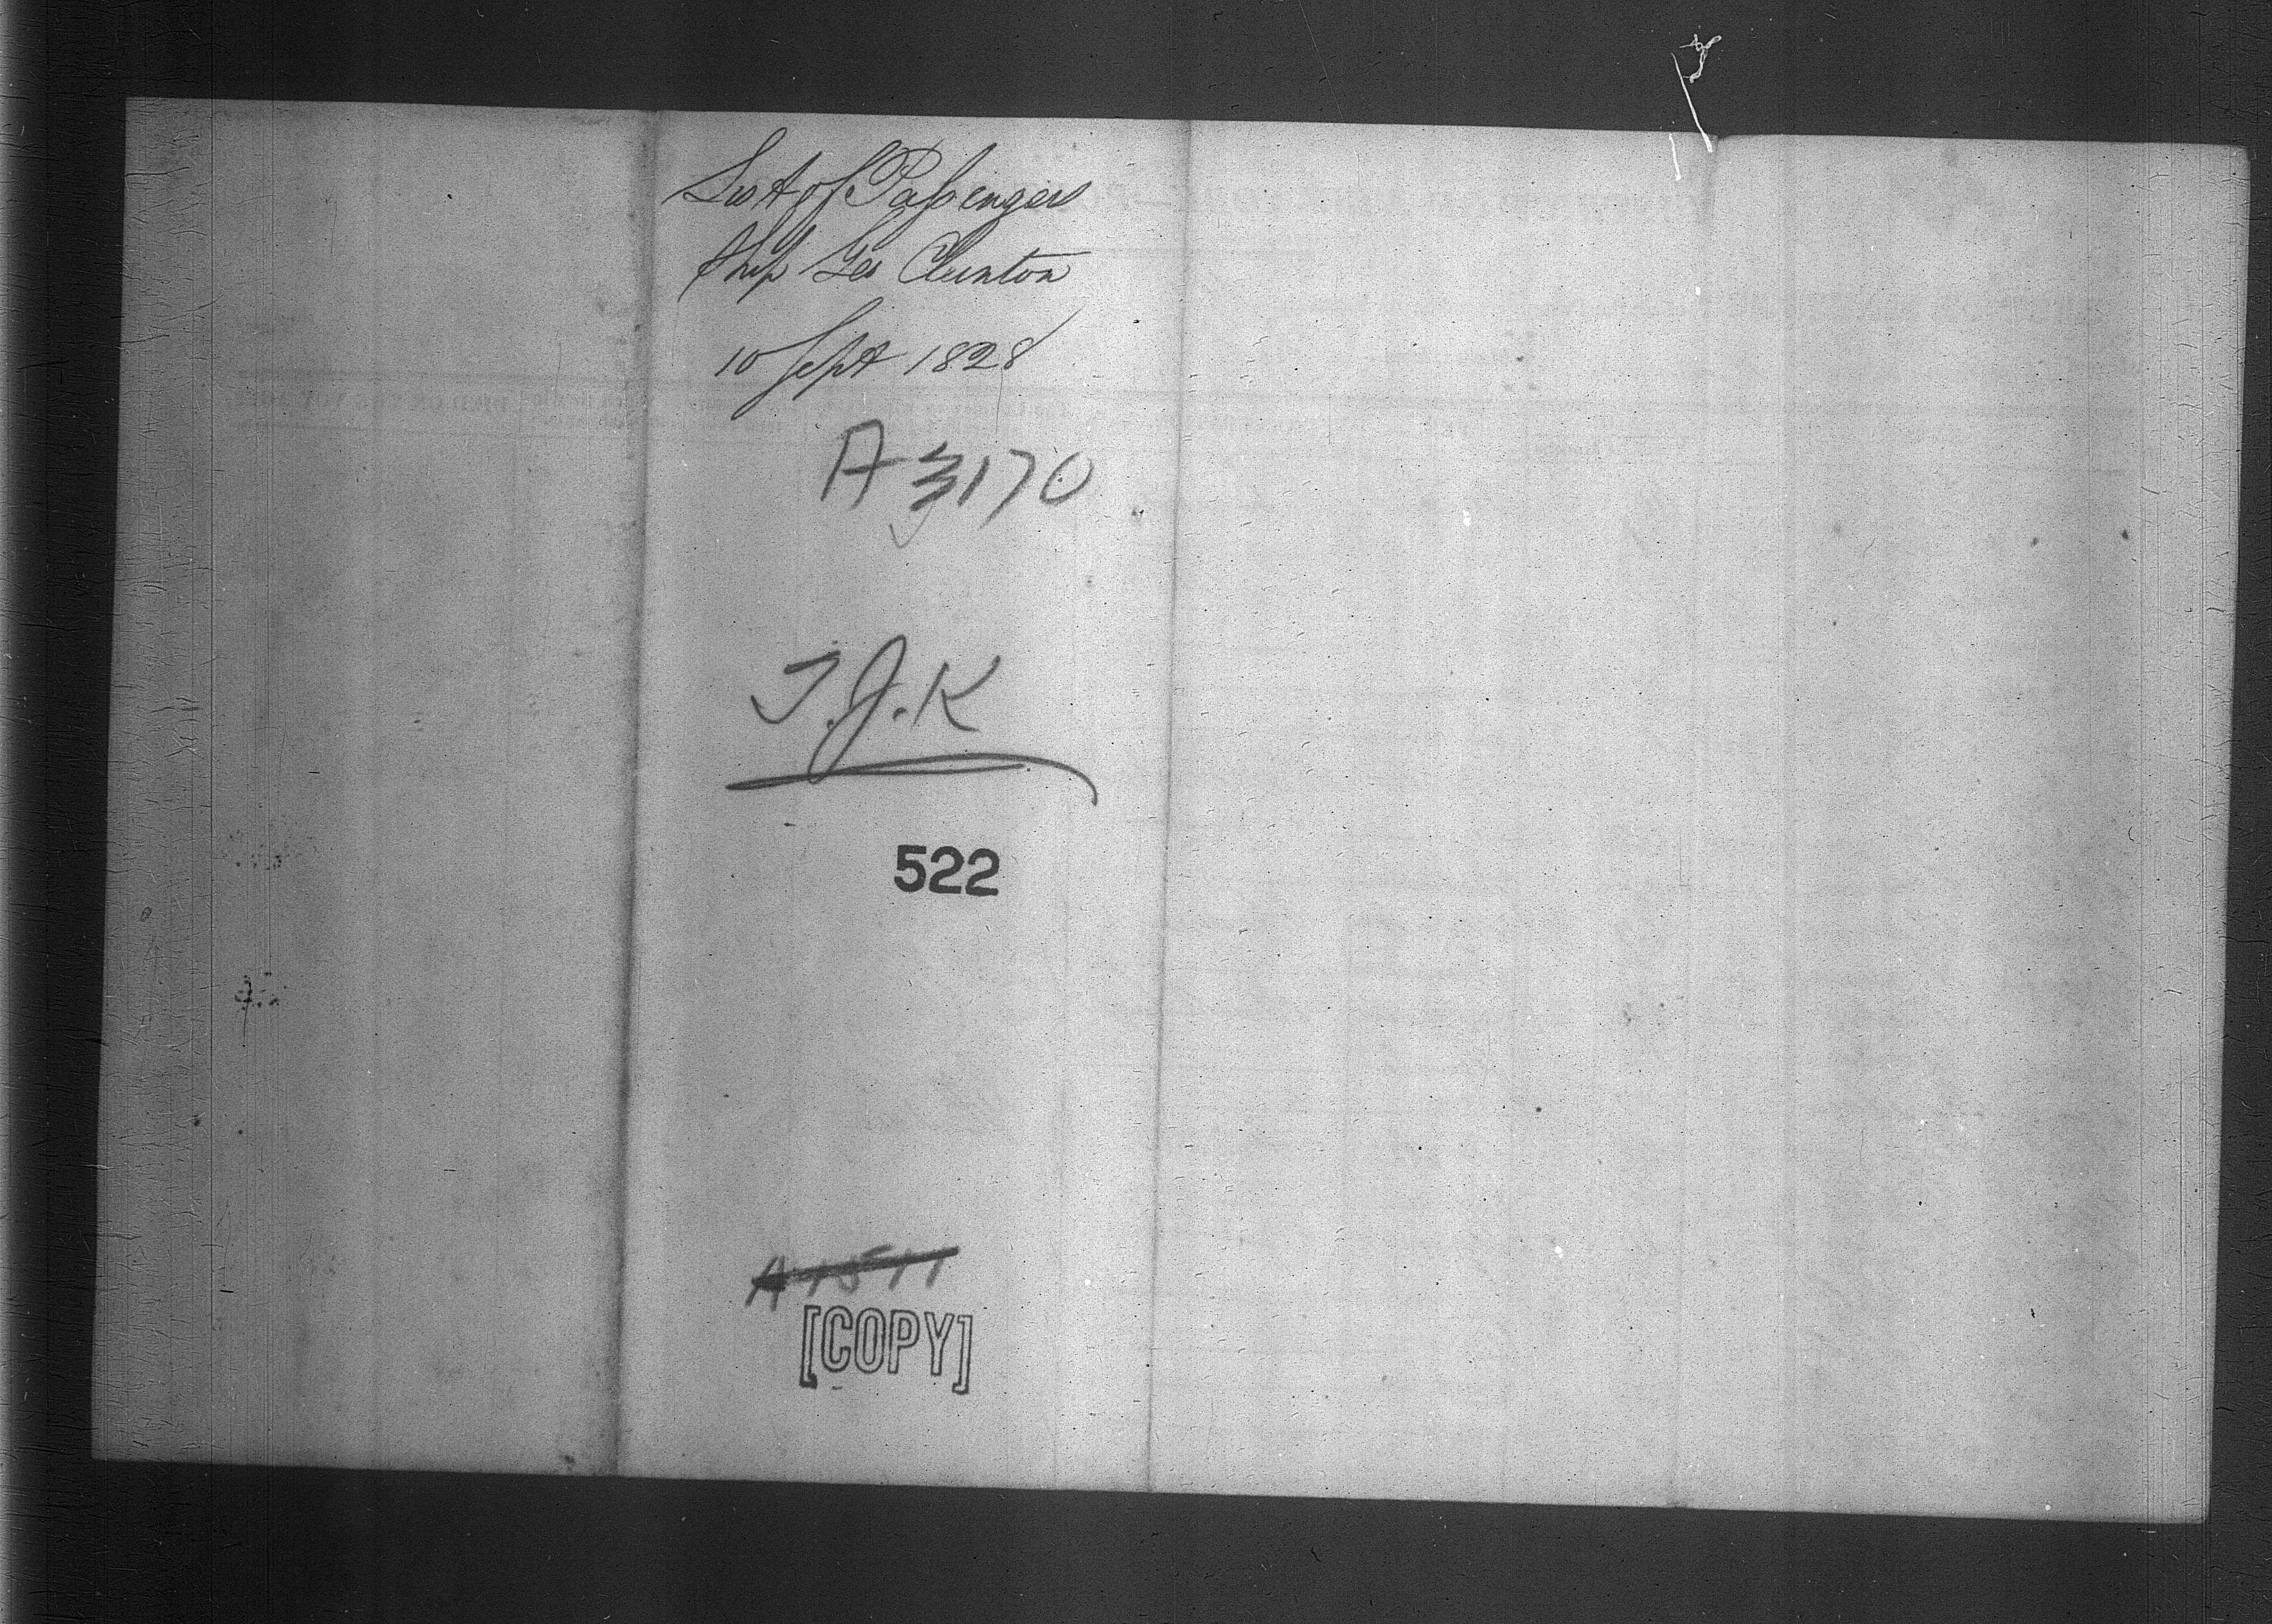 List of Passengers
Ship Geo Clinton
10 Sept 1828
A 3170
T.J.K
522
[COPY]